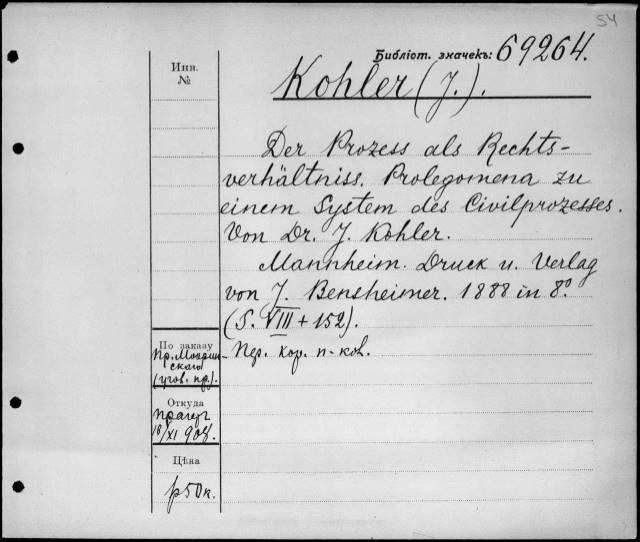 54
Библіот. значекъ: 69264.
Инв.
№
Kohler (J.).
Der Prozess als Rechts-
verhältniss. Prolegomena zu
einem System des Civilprozesses.
Von Dr. J. Kohler.
Mannheim. Druck u. Verlag
von J. Bensheimer. 1888 in 8°.
(S. VIII + 152).
По заказу
Пер. кор. п-ков.
Пр.
скаго
(угов. пр.).
Откуда
Прагеръ
18/XI 908.
Цѣна
р 50 к.